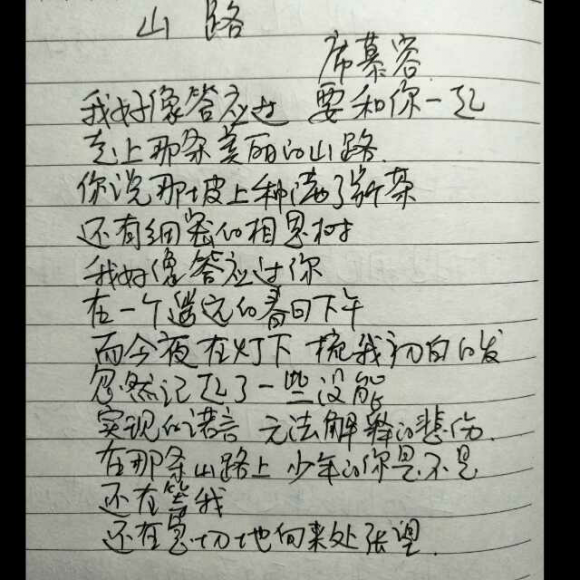 山路
席慕容
我好像答应过 要和你一起
走上那条美丽的山路
你说那坡上种满了新茶
还有细密的相思树
我好像答应过你
在一个遥远的春日下午
而今夜在灯下 梳我初白的发
忽然记起了一些没能
实现的诺言 无法解释的悲伤
在那条山路上 少年的你是不是
还在等我
还在急切地向来处张望